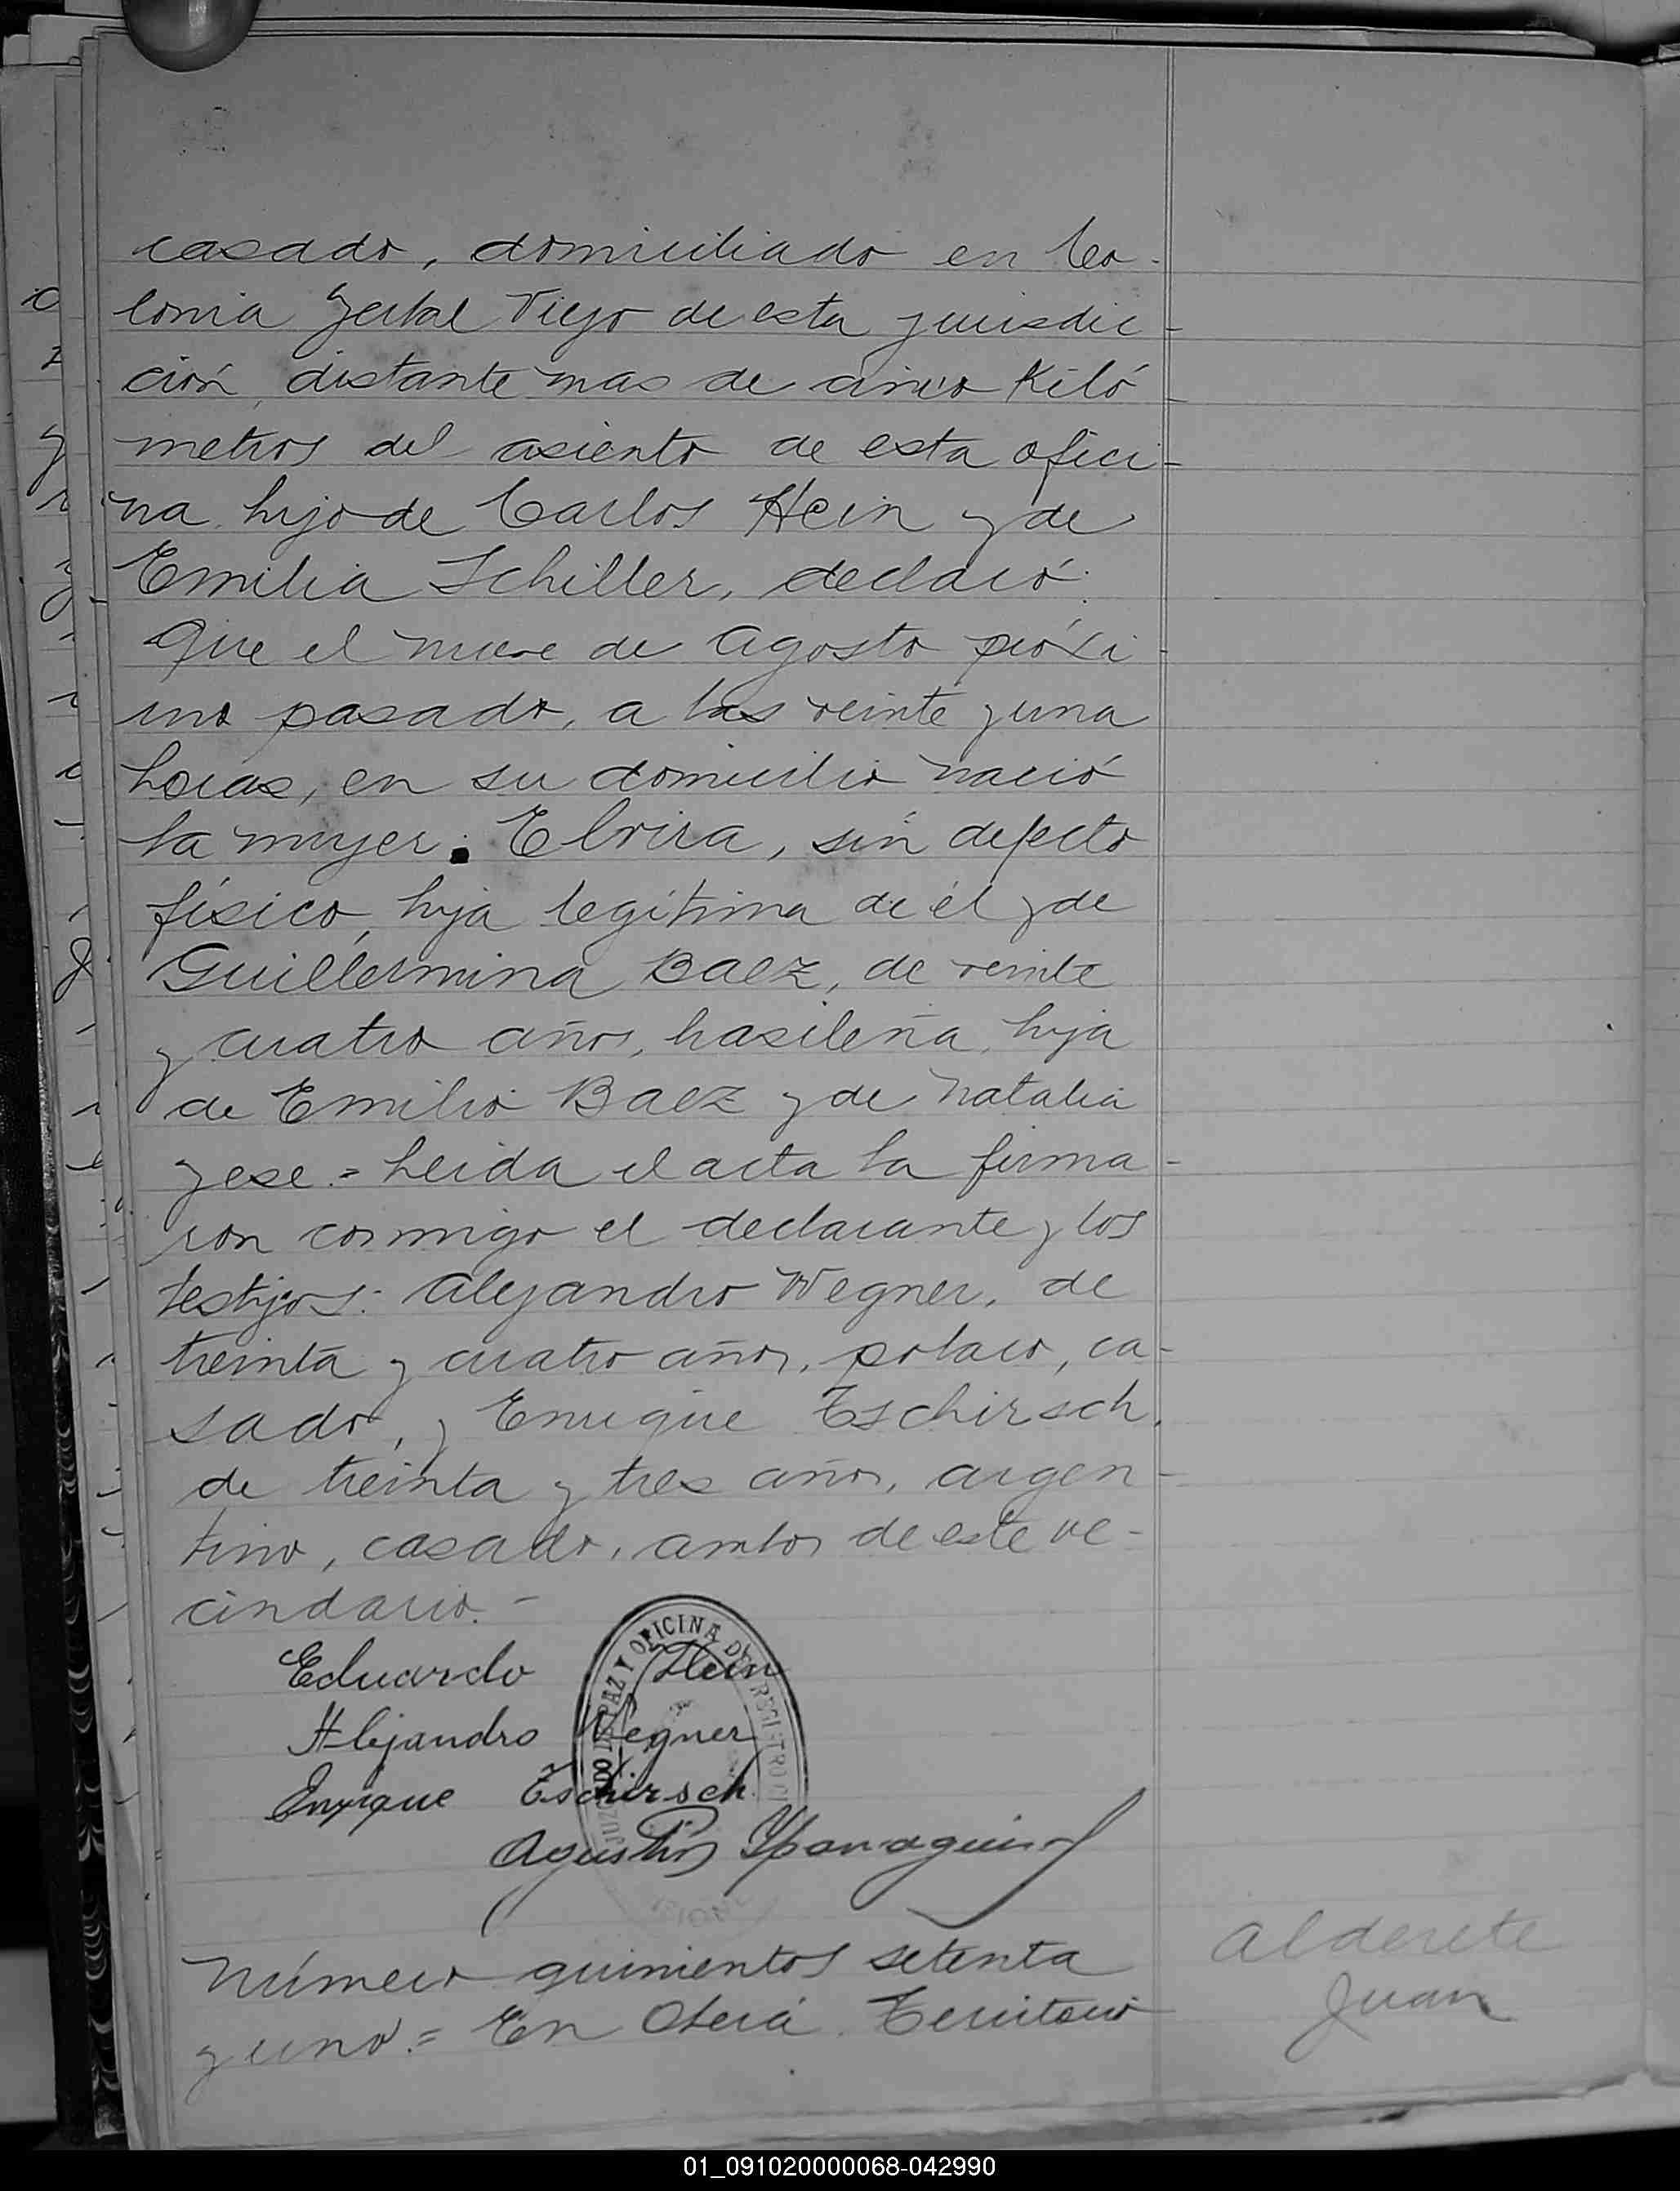 casado, domiciliado en Co-
lonia Yerbal Viejo de esta jurisdic-
ción, distante mas de cinco Kiló-
metros del asiento de esta ofici-
na, hijo de Carlos Hein y de
Emilia Schiller, declaró:
Que el nueve de Agosto próxi-
mo pasado, a las veinte y una
horas, en su domicilio nació
la mujer: Elvira, sin defecto
físico, hija legítima de él y de
Guillermina Baez, de veinte
y cuatro años, brasileña, hija
de Emilio Baez y de Natalia
Yese.= Leida el acta la firma-
ron conmigo el declarante y los
testigos: Alejandro Wegner, de
treinta y cuatro años, polaco, ca-
sado, y Enrique Tschirsch,
de treinta y tres años, argen-
tino, casado, ambos de este ve-
cindario.-
Eduardo Hein
Alejandro Wegner
Enrique Tschirsch
Agustín
JUZGADO DE PAZ Y OFICINA DEL REGISTRO
Número quinientos setenta
y uno.= En Oberá, Territorio
Alderete
Juan
01_091020000068-042990